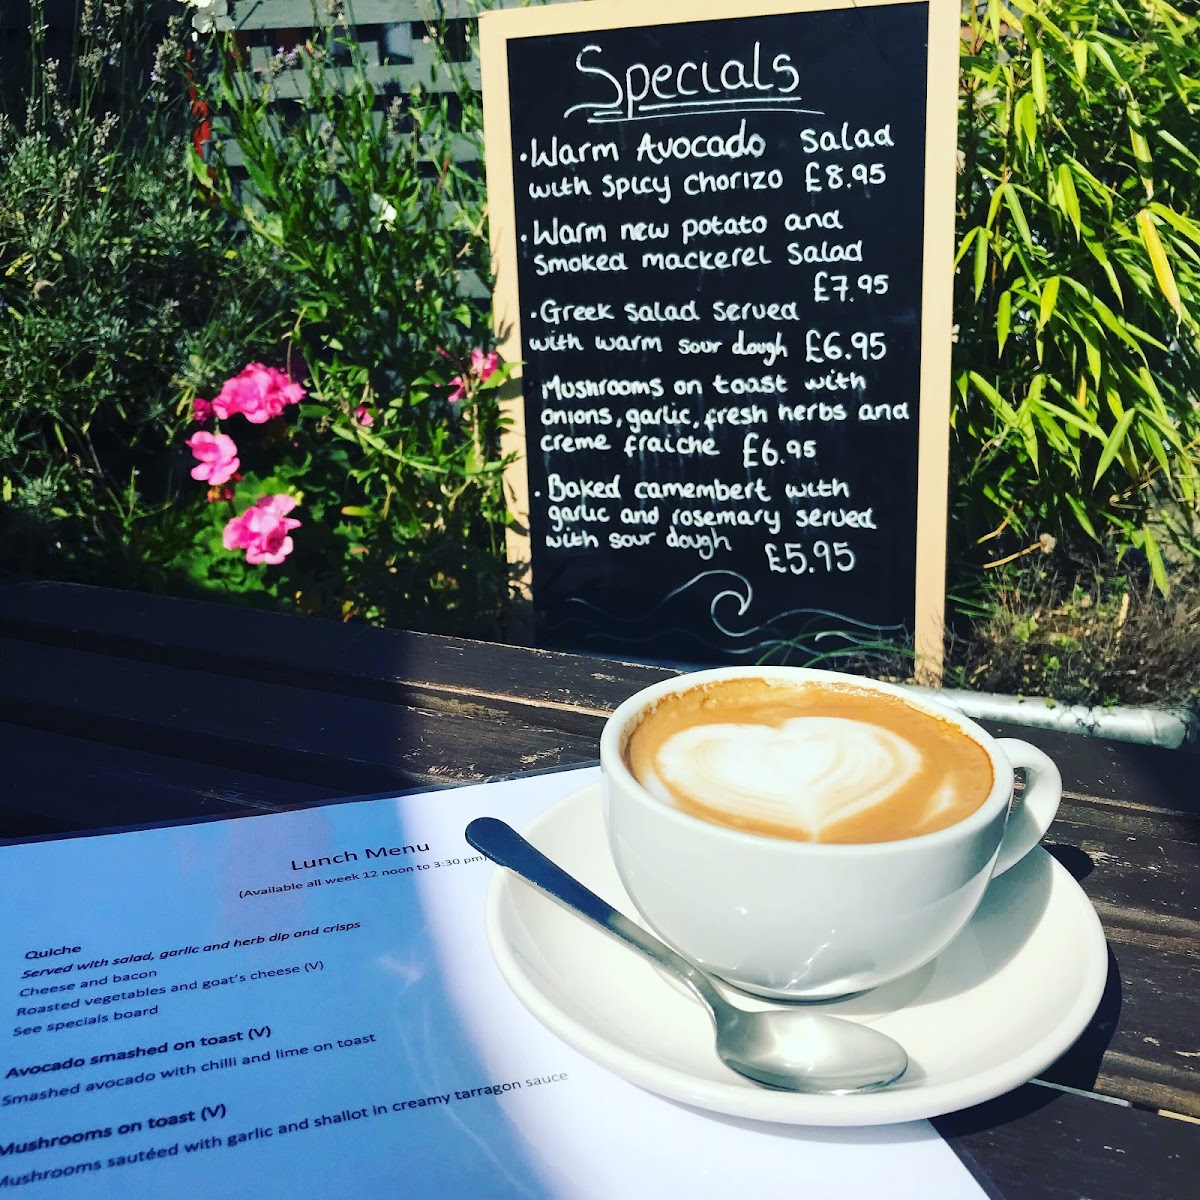 Specials
• Warm Avocado Salad
with spicy chorizo £8.95
• Warm new potato and
smoked mackerel Salad
£7.95
• Greek salad served
with warm sour dough £6.95
Mushrooms on toast with
onions, garlic, fresh herbs and
creme fraiche £6.95
• Baked camembert with
garlic and rosemary served
with sour dough £5.95
Lunch Menu
(Available all week 12 noon to 3:30 pm)
Quiche
Served with salad, garlic and herb dip and crisps
Cheese and bacon
Roasted vegetables and goat's cheese (V)
See specials board
Avocado smashed on toast (V)
Smashed avocado with chilli and lime on toast
Mushrooms on toast (V)
Mushrooms sautéed with garlic and shallot in creamy tarragon sauce